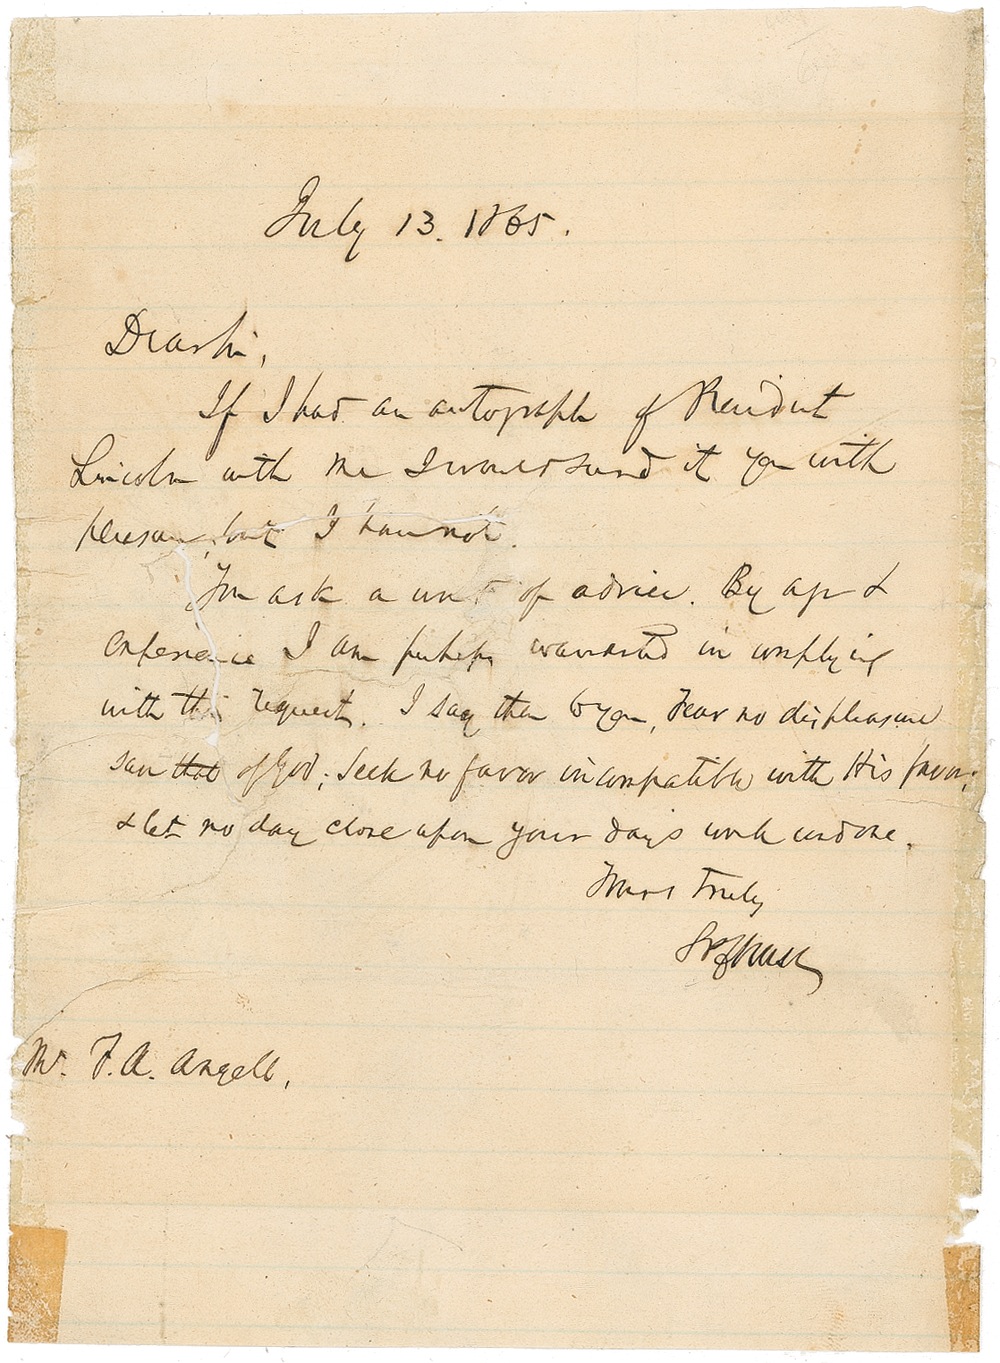 July 13. 1865.
Dear Sir,
If I had an autograph of President
Lincoln with me I would send it you with
pleasure, but I have not.
You ask a word of advice. By age &
experience I am perhaps warranted in complying
with this request. I say then to you, Fear no displeasure
save that of God; Seek no favor incompatible with His favor;
& let no day close upon your days work undone.
Yours truly
SPChase
Mr. F. A. Angell,